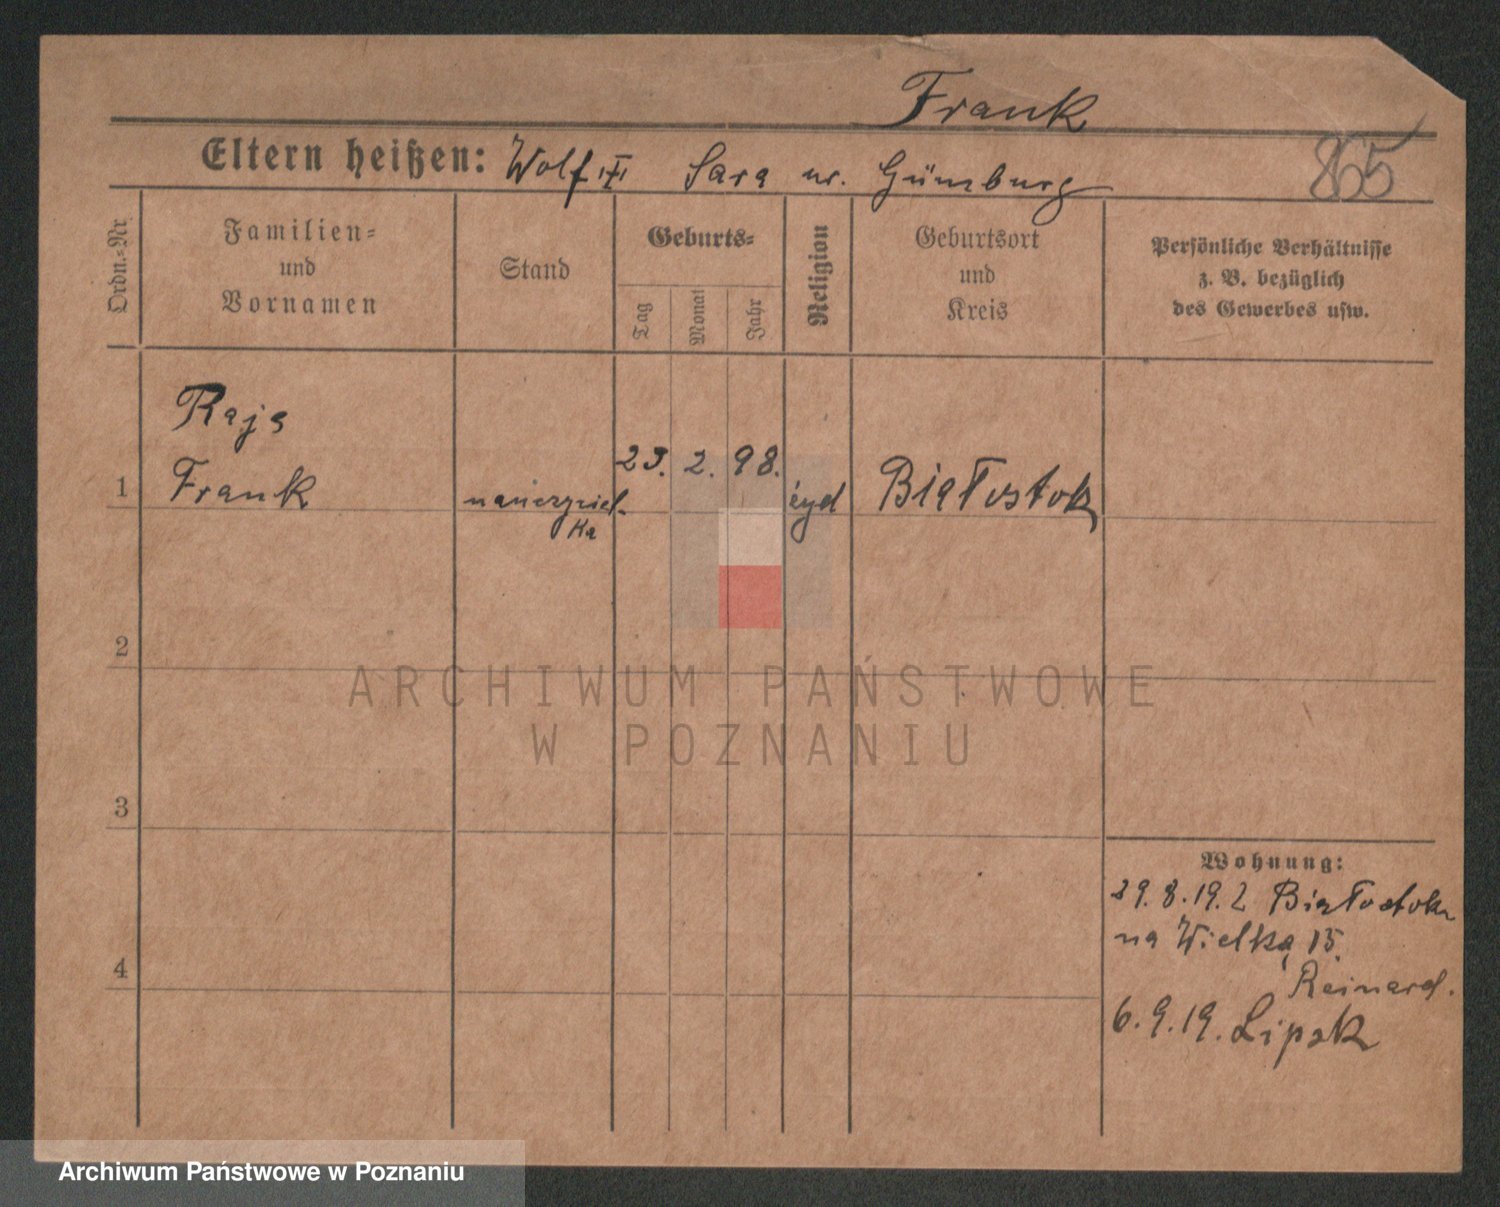 Frank
Eltern heißen: Wolf Sara ur. Günzburg
865
Ordn.-Nr.
Familien-
und
Vornamen
Stand
Geburts-
Tag
Monat
Jahr
Religion
Geburtsort
und
Kreis
Persönliche Verhältnisse
z. B. bezüglich
des Gewerbes usw.
Raja
1 Frank nauczyciel- 23. 2. 98. żyd Białostok
ka
2
3
4
Wohnung:
29. 8. 19. z Białostoku
na Wielką 15.
6. 9. 19. Lipsk
ARCHIWUM PAŃSTWOWE
W POZNANIU
Archiwum Państwowe w Poznaniu